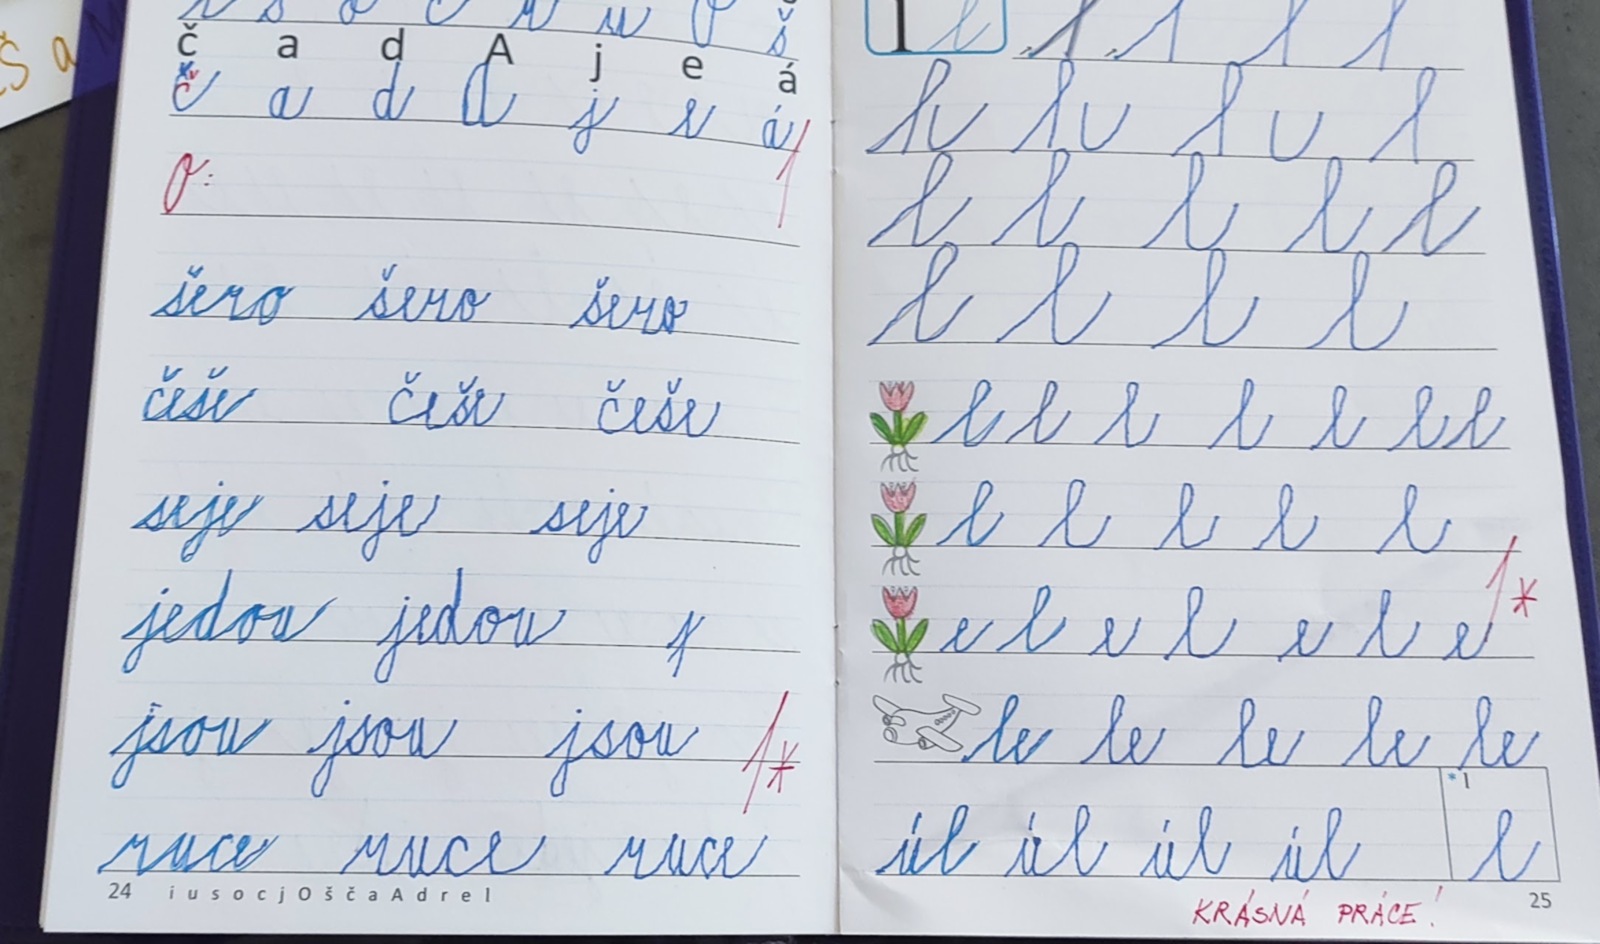 č a d A j e á
č a d A j e á
o:
1
šero šero šero
češe češe češe
seje seje seje
jedou jedou j
jsou jsou jsou
1*
ruce ruce ruce
24 i u s o c j O š č a A d r e l
l l
l l l l l
l l l l
l l l l l l l
l l l l l
e l e l e l e
1*
le le le le le
*l
úl úl úl úl l
KRÁSNÁ PRÁCE!
25